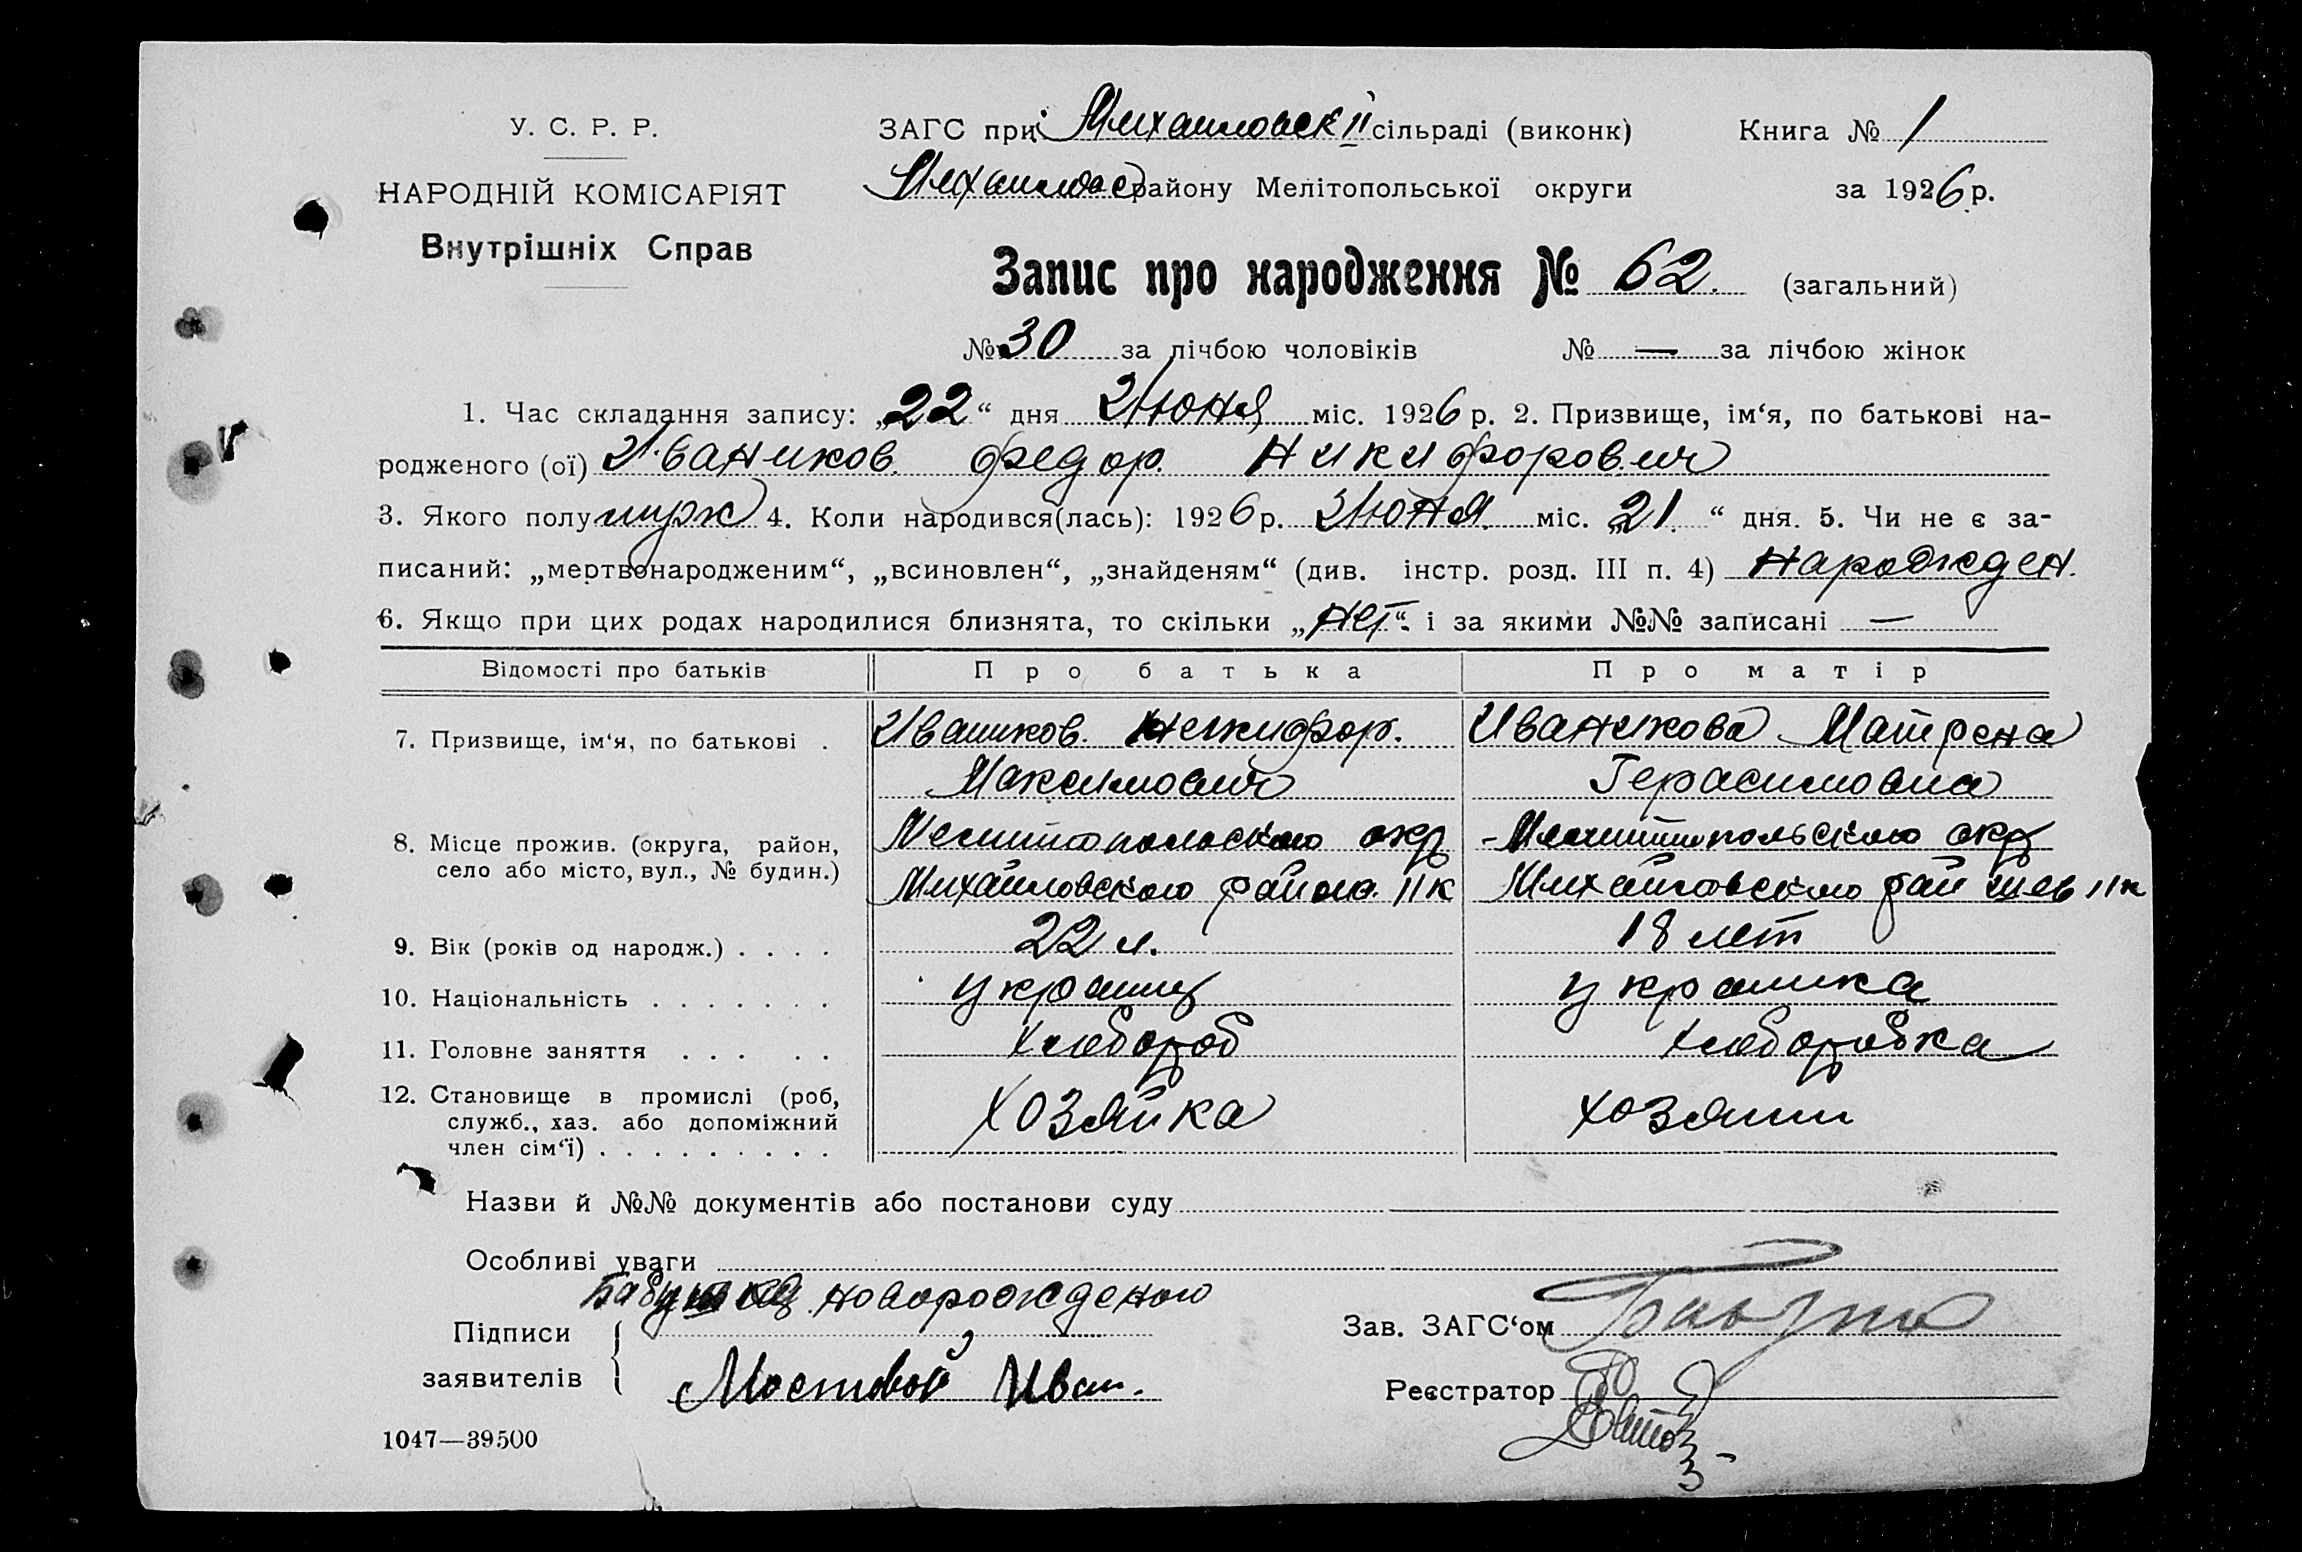 У. С. Р. Р.
НАРОДНІЙ КОМІСАРІЯТ
Внутрішніх Справ
ЗАГС при Михайловск II сільраді (виконк) Книга № 1
Михайловс району Мелітопольської округи за 1926 р.
Запис про народження № 62. (загальний)
№ 30 за лічбою чоловіків № — за лічбою жінок
1. Час складання запису: „22“ дня Июня міс. 1926 р. 2. Призвище, ім‘я, по батькові на-
родженого (ої) Иваников Федор. Никифорович
3. Якого полу мужс 4. Коли народився(лась): 1926 р. Июня. міс. „21“ дня. 5. Чи не є за-
писаний: „мертвонародженим“, „всиновлен“, „знайденям“ (див. інстр. розд. III п. 4) Народжден.
6. Якщо при цих родах народилися близнята, то скільки „нет“ і за якими №№ записані —
Відомості про батьків Про батька Про матір
7. Призвище, ім‘я, по батькові . Иваников. Никифор. Иваникова Матрена
Максимович Герасимовна
8. Місце прожив. (округа, район, Мелитопольского окр Мелитопольского окр
село або місто, вул., № будин.) Михайловского района. II к Михайловского рай II к
9. Вік (років од народж.) . . . . 22 л. 18 лет
10. Національність . . . . . . . украинц украинка
11. Головне заняття . . . . . хлебороб хлеборобка
12. Становище в промислі (роб, хозяйка хозяин
служб., хаз. або допоміжний
член сім‘ї) . . . . . . . . .
Назви й №№ документів або постанови суду
Особливі уваги
Бабушка новорожденого
Підписи Зав. ЗАГС‘ом
заявителів Мостовой Иван.
Реєстратор
1047—39500